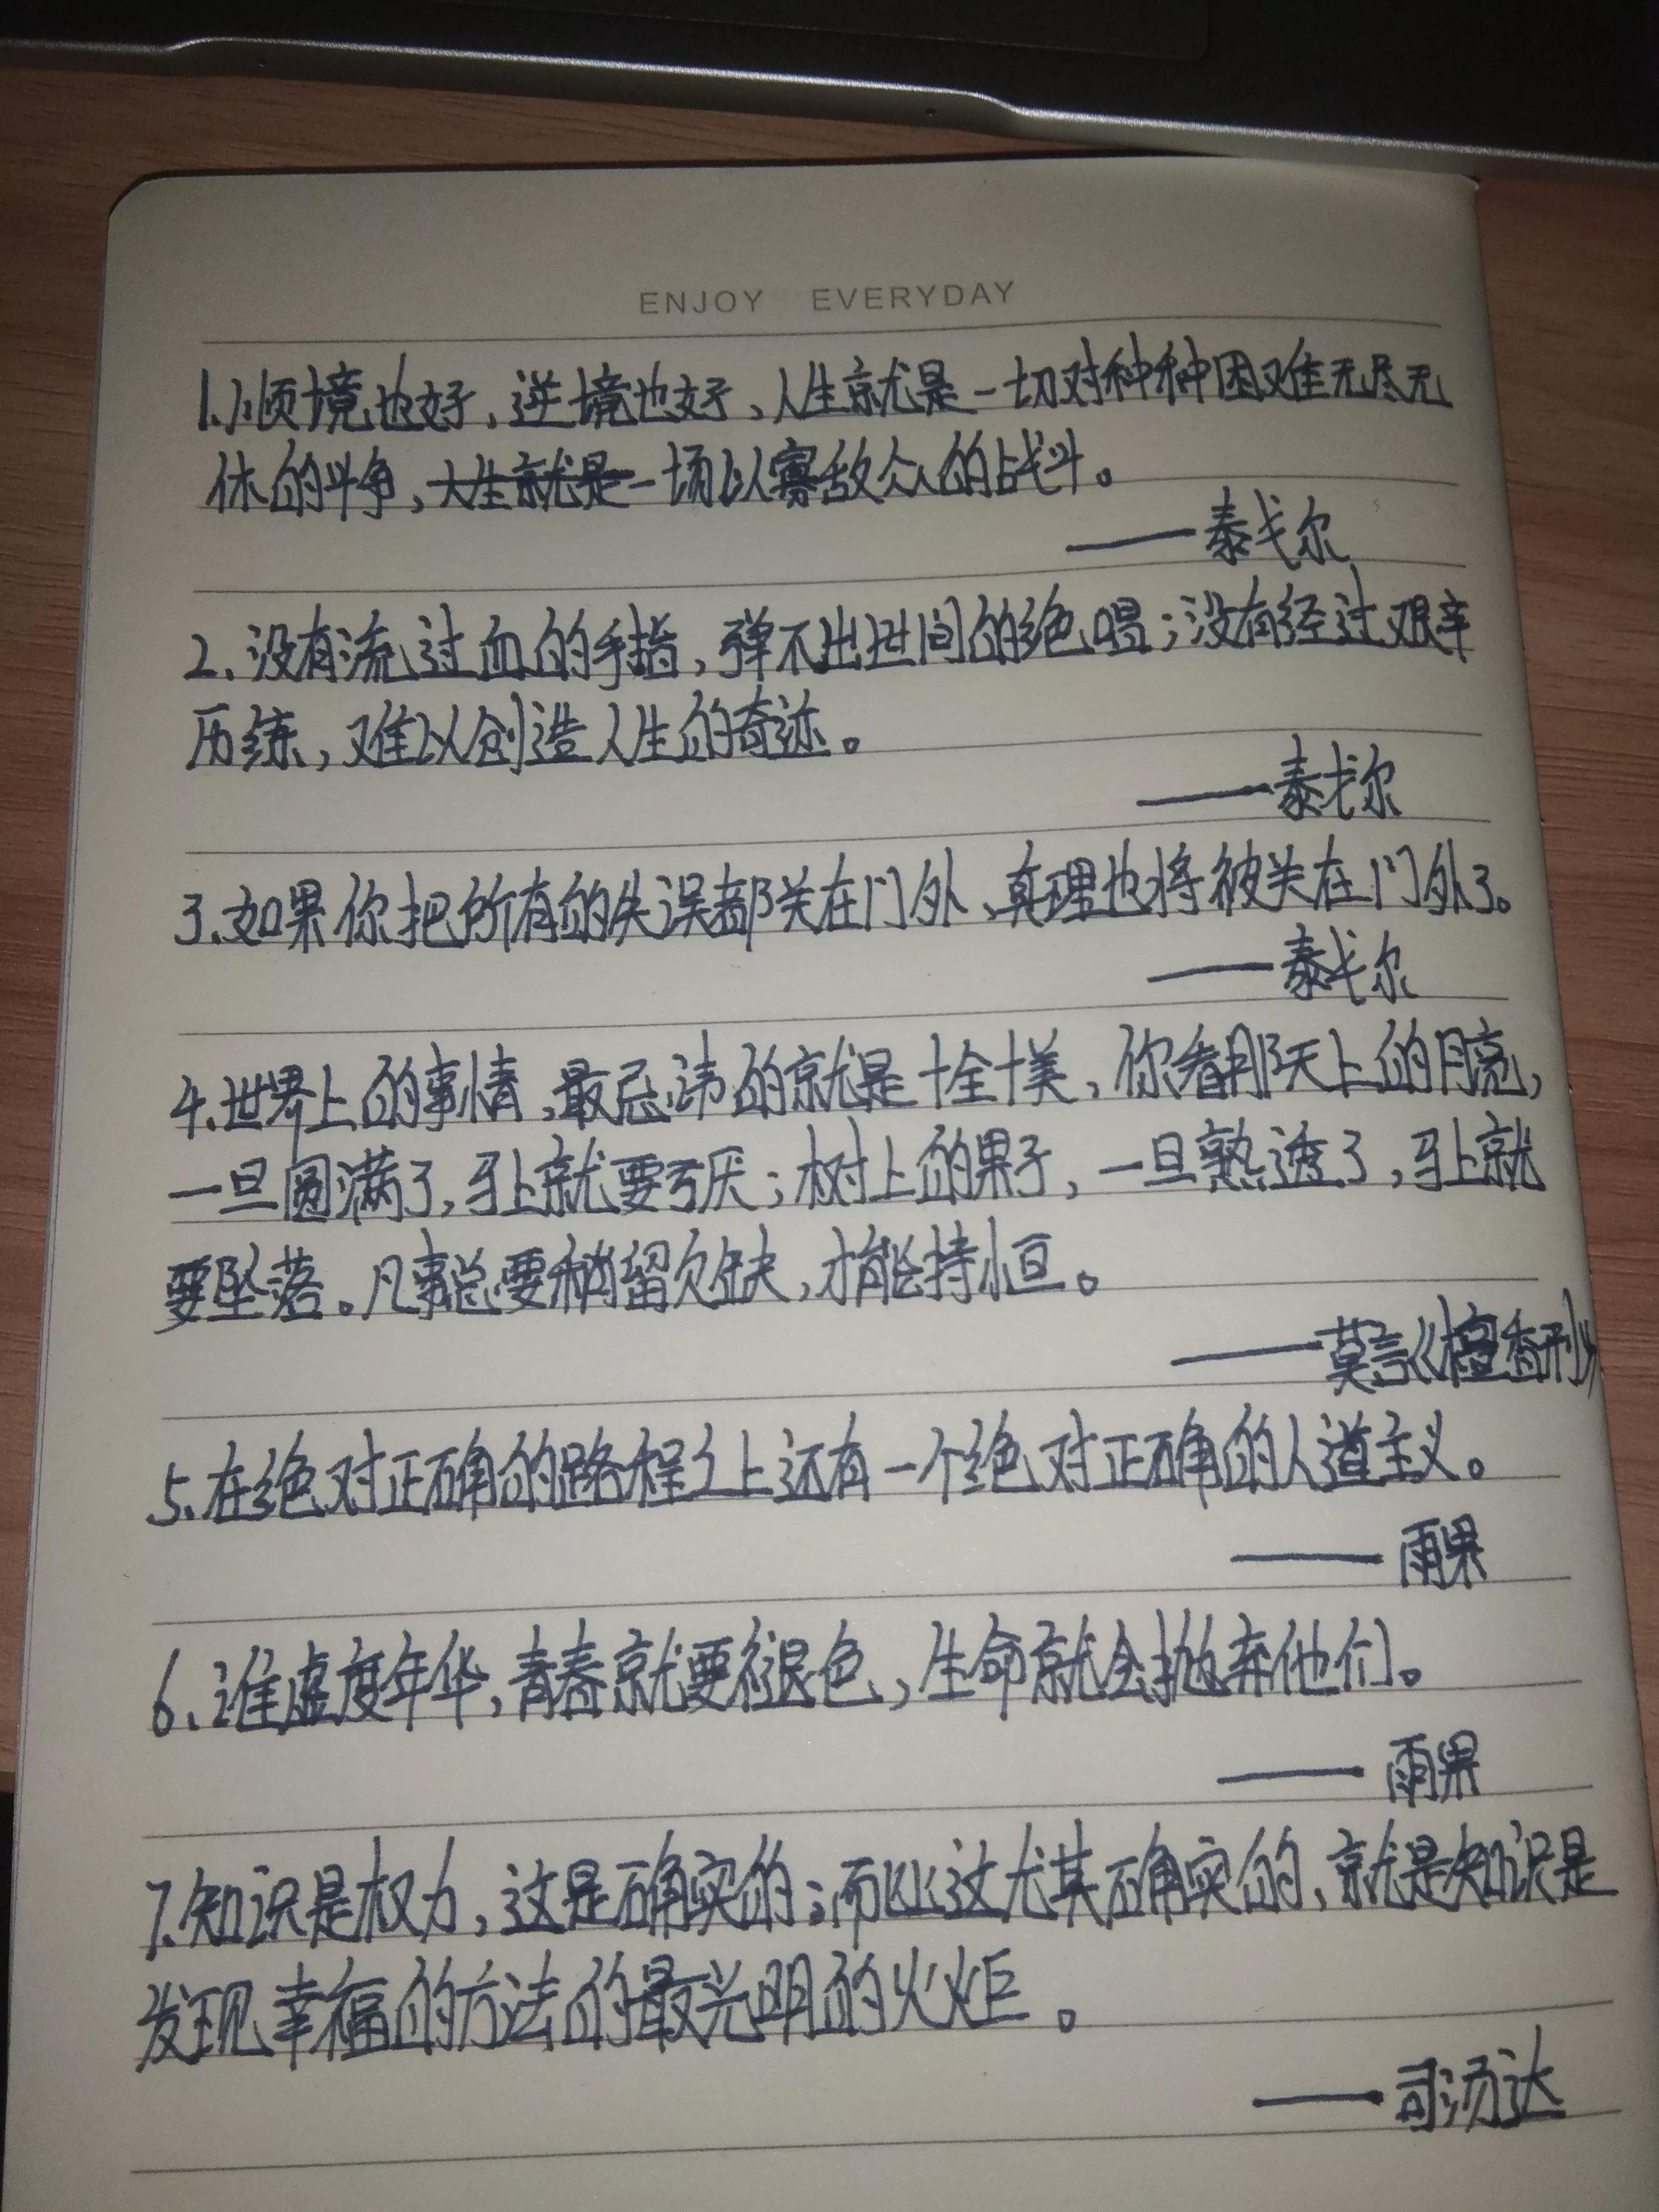 ENJOY EVERYDAY
1.顺境也好,逆境也好,人生就是一切对种种困难无尽无
休的斗争,人生就是一场以寡敌众的战斗。
——泰戈尔
2.没有流过血的手指,弹不出世间的绝唱;没有经过艰辛
历练,难以创造人生的奇迹。
——泰戈尔
3.如果你把所有的失误都关在门外,真理也将被关在门外了。
——泰戈尔
4.世界上的事情,最忌讳的就是十全十美,你看那天上的月亮,
一旦圆满了,马上就要亏厌;树上的果子,一旦熟透了,马上就
要坠落。凡事总要稍留欠缺,才能持恒。
——莫言《檀香刑》
5.在绝对正确的路程之上还有一个绝对正确的人道主义。
——雨果
6.谁虚度年华,青春就要褪色,生命就会抛弃他们。
——雨果
7.知识是权力,这是确实的;而比这尤其确实的,就是知识是
发现幸福的方法的最光明的火炬。
——司汤达